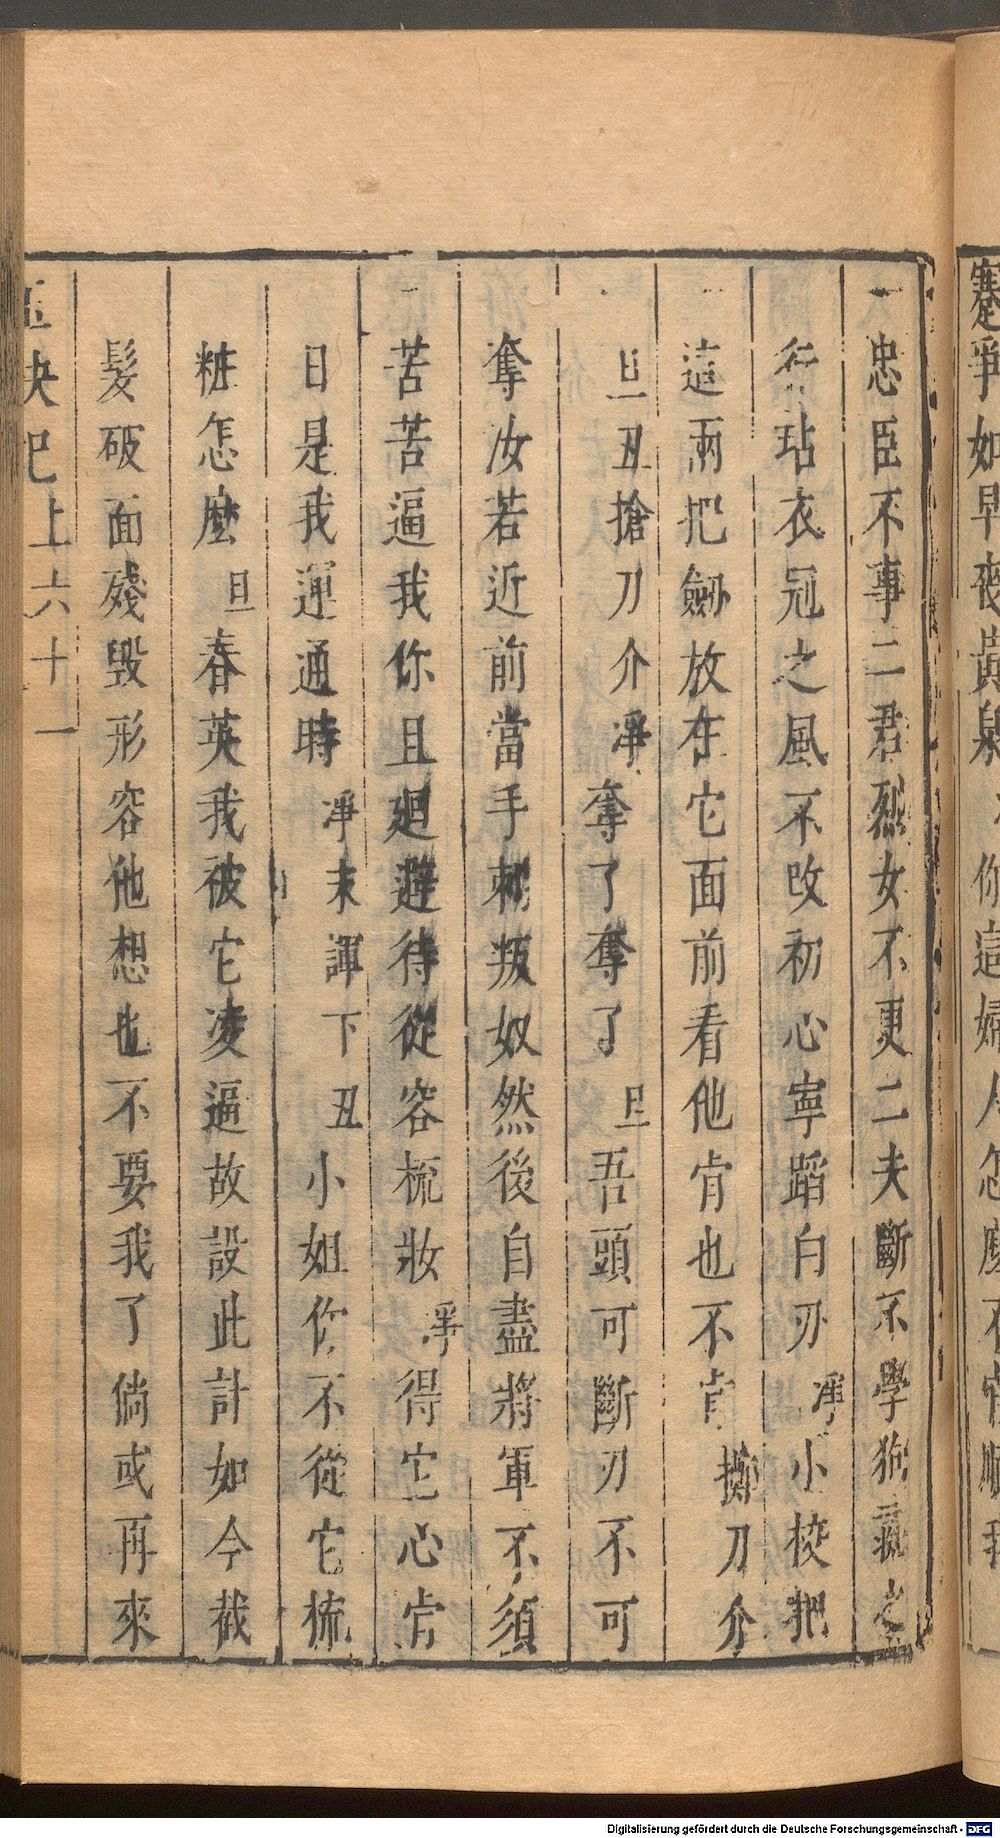 蹇爭如早丧黃泉 你這婦人怎麽不肯順我
忠臣不事二君烈女不更二夫斷不學狗彘之
行玷衣冠之風不改初心寧蹈白刃 淨 小校把
這兩把劒放在它面前看他肯也不肯 擲刀介
旦丑搶刀介 淨 奪了奪了 旦 吾頭可斷刃不可
奪汝若近前當手刺叛奴然後自盡將軍不須
苦苦逼我你且廻避待從容梳妝 淨 得它心肯
日是我運通時 淨末諢下 丑 小姐你不從它梳
粧怎麽 旦 春英我被它凌逼故設此計如今截
髮破面殘毀形容他想也不要我了倘或再來
玉玦記上六十一
Digitalisierung gefördert durch die Deutsche Forschungsgemeinschaft - DFG